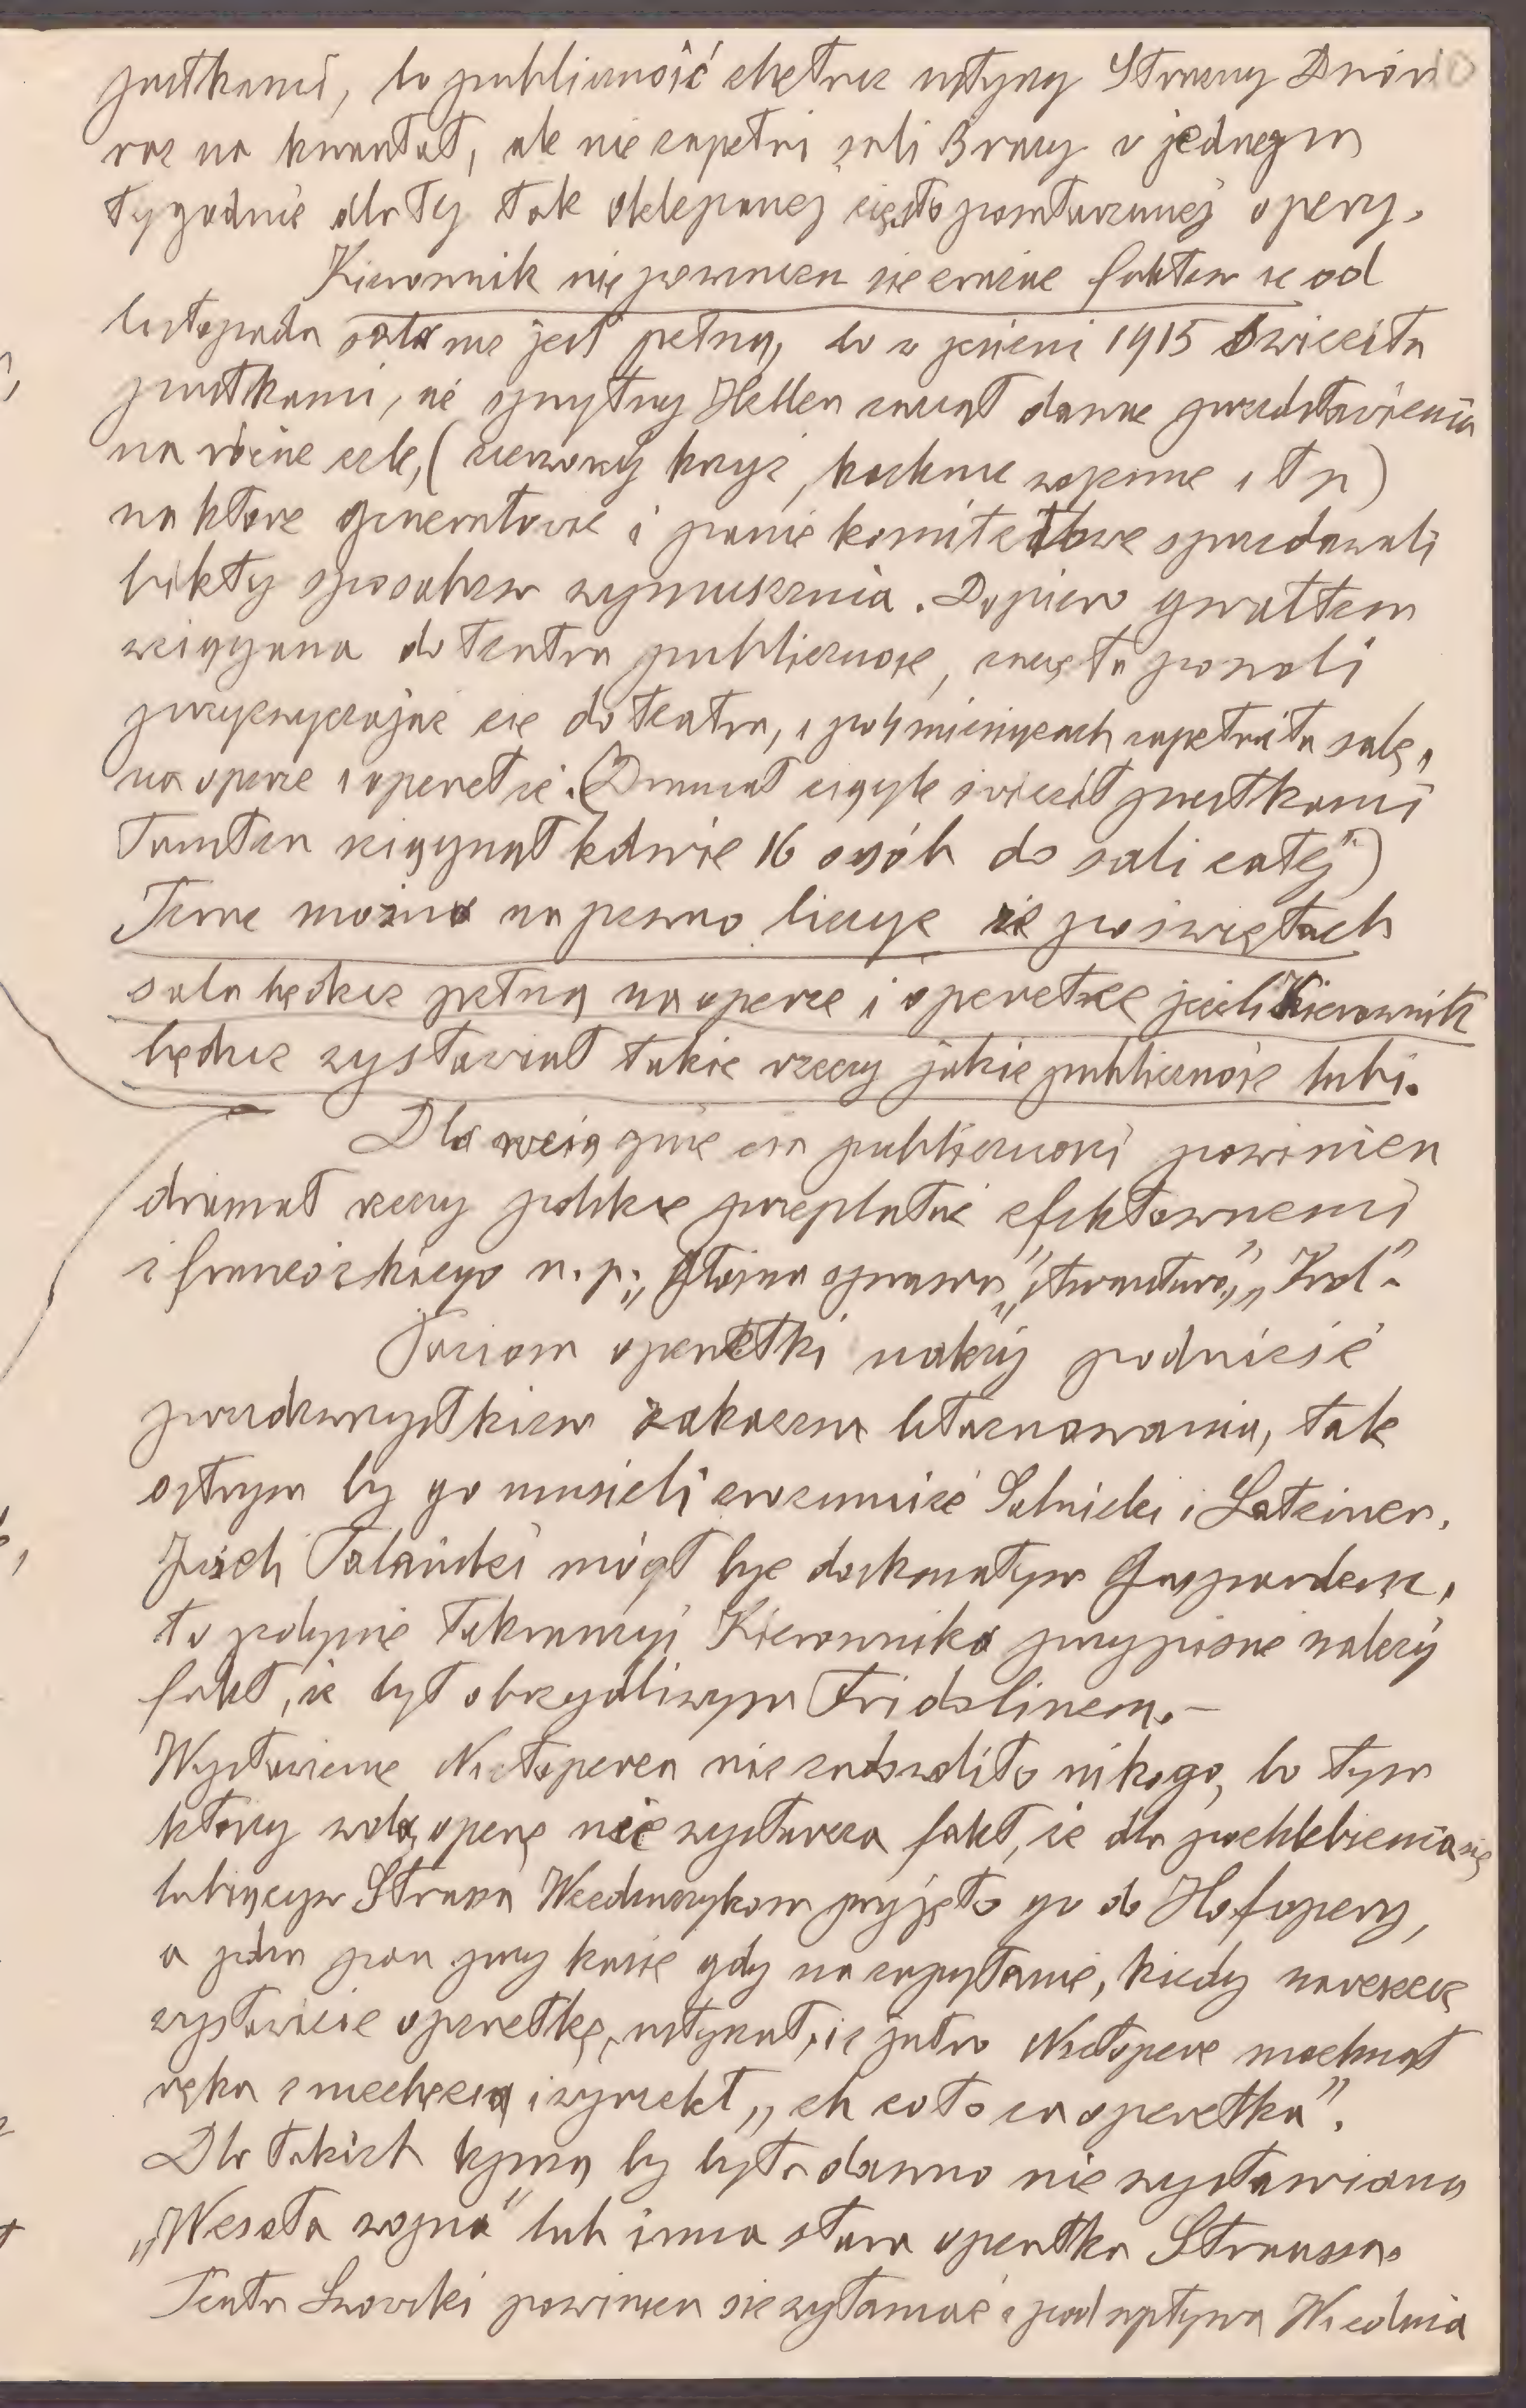 pustkami, bo publiczność chętnie usłyszy Straszny Dwór
raz na kwartał, ale nie zapełni sali 3 razy w jednym
tygodniu dla tej tak oklepanej często powtarzanej opery.
Kierownik nie powinien się zrażać faktem że od
listopada sala nie jest pełną, bo w jesieni 1915 świeciła
pustkami, aż sprytny Heller zaczął dawać przedstawienia
na różne cele, (czerwony krzyż, kuchnie wojenne i t p)
na które generałowie i panie komitetowe sprzedawali
bilety sposobem wymuszenia. Dopiero gwałtem
wciągana do teatru publiczność, zaczęła powoli
przyzwyczajać się do teatru, i po 4 miesiącach zapełniła salę,
na operze i operetce. (Dramat ciągle świecił pustkami
Tamten ściągnął ledwie 16 osób do sali całej)
Teraz można na pewno liczyć że po świętach
sala będzie pełną na operze i operetce jeżeli Kierownik
będzie wystawiał takie rzeczy jakie publiczność lubi.
Dla wciągnięcia publiczności powinien
dramat rzeczy polskie przeplatać efektownemi
z francuskiego n. p. „Głośna sprawa” „Awantura”, „Król”.
Poziom operetki należy podnieść
przedewszystkiem zakazem błaznowania, tak
ostrym by go musieli zrozumieć Solnicki i Lateiner.
Jeżeli Palański mógł być doskonałym Gaspardem,
to jedynie tolerancyi Kierownika przypisać należy
fakt, że był obrzydliwym Fridolinem. –
Wystawienie Nietoperza nie zadowoliło nikogo, bo tym
którzy wolą operę nie wystarcza fakt, że dla pochlebienia się
lubiącym Straussa Wiedeńczykom przyjęto go do Hofopery,
a jeden pan przy kasie gdy na zapytanie, kiedy nareszcie
wystawicie operetkę, usłyszał, że jutro Nietoperz machnął
ręką z niechęcią i wyrzekł „eh co to za operetka”.
Dla takich by była dawno nie wystawiana
„Wesoła wojna” lub inna stara operetka Straussa.
Teatr Lwowski powinien się wyłamać z pod wpływu Wiednia